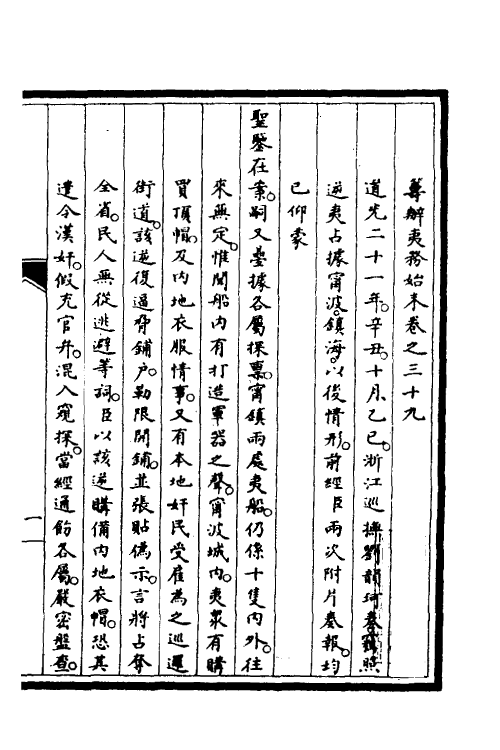 籌辦夷務始末卷之三十九
道光二十一年。辛丑。十月。乙巳。浙江巡撫劉韻珂奏。竊照
逆夷占據甯波。鎮海。以後情形。前經臣兩次附片奏報。均
已仰蒙
聖鑒在案。嗣又疊據各屬探稟。甯鎮兩處夷船。仍係十隻內外。往
來無定。惟聞船內有打造軍器之聲。甯波城內。夷眾有購
買頂帽。及內地衣服情事。又有本地奸民受雇為之巡邏
街道。該逆復逼脅鋪戶。勒限開鋪。並張貼偽示。言將占奪
全省。民人無從逃避等詞。臣以該逆購備內地衣帽。恐其
遣令漢奸。假充官弁。混入窺探。當經通飭各屬。嚴密盤查。